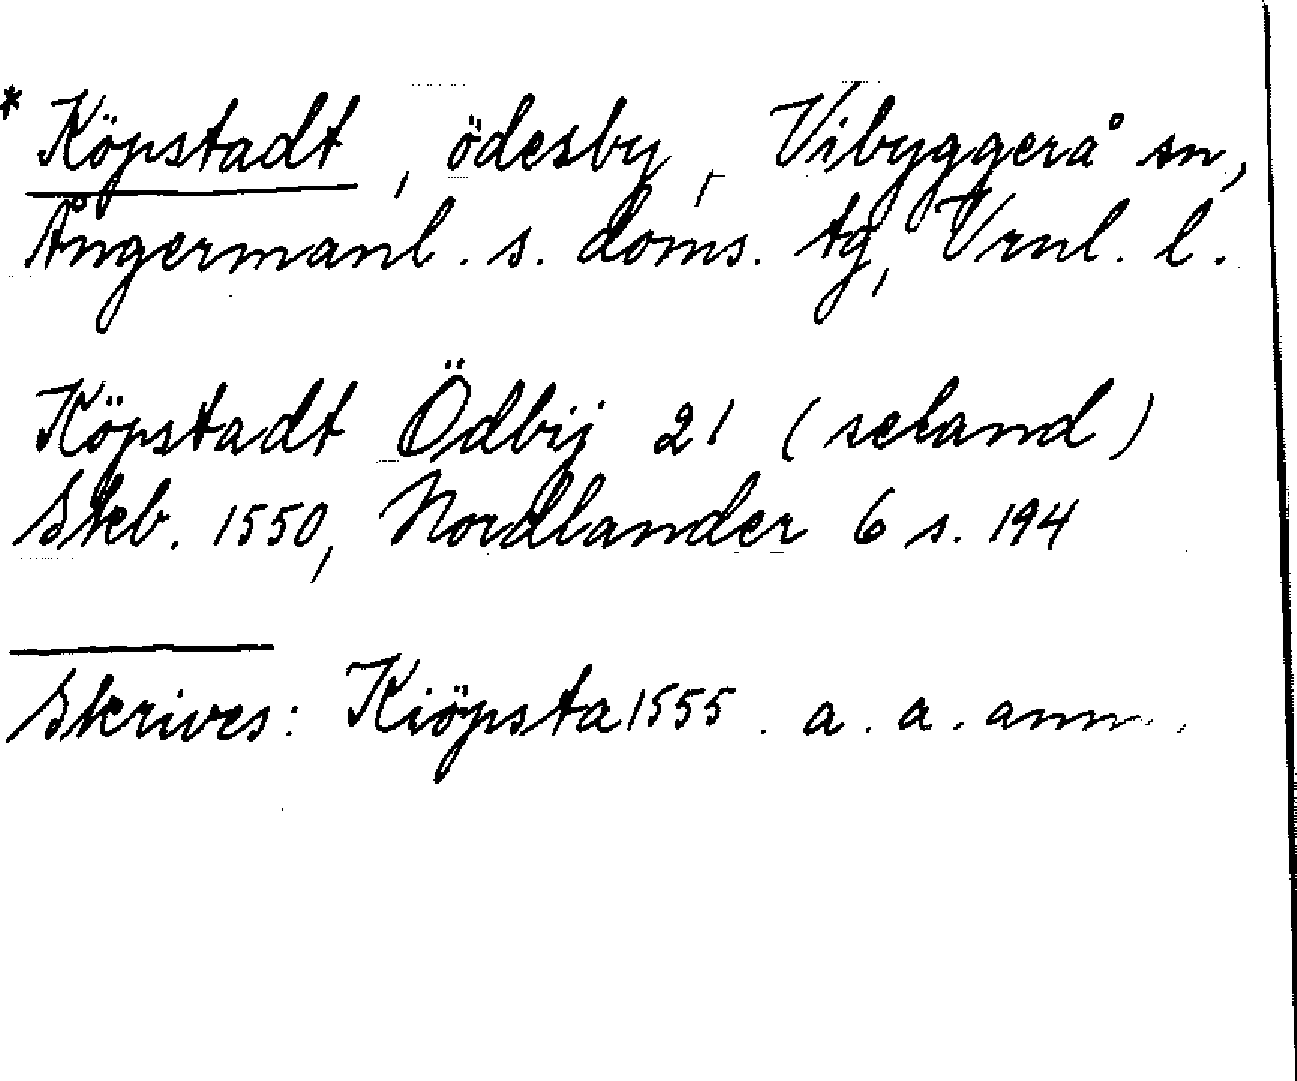 * Köpstadt, ödesby, Vibyggerå sn,
Ångermanl. s. doms. tg, Vrnl. l.
Köpstadt Ödbij 21 (seland)
Skb. 1550, Nordlander 6 s. 194
Skrives: Kiöpsta 1555. a. a. anm.